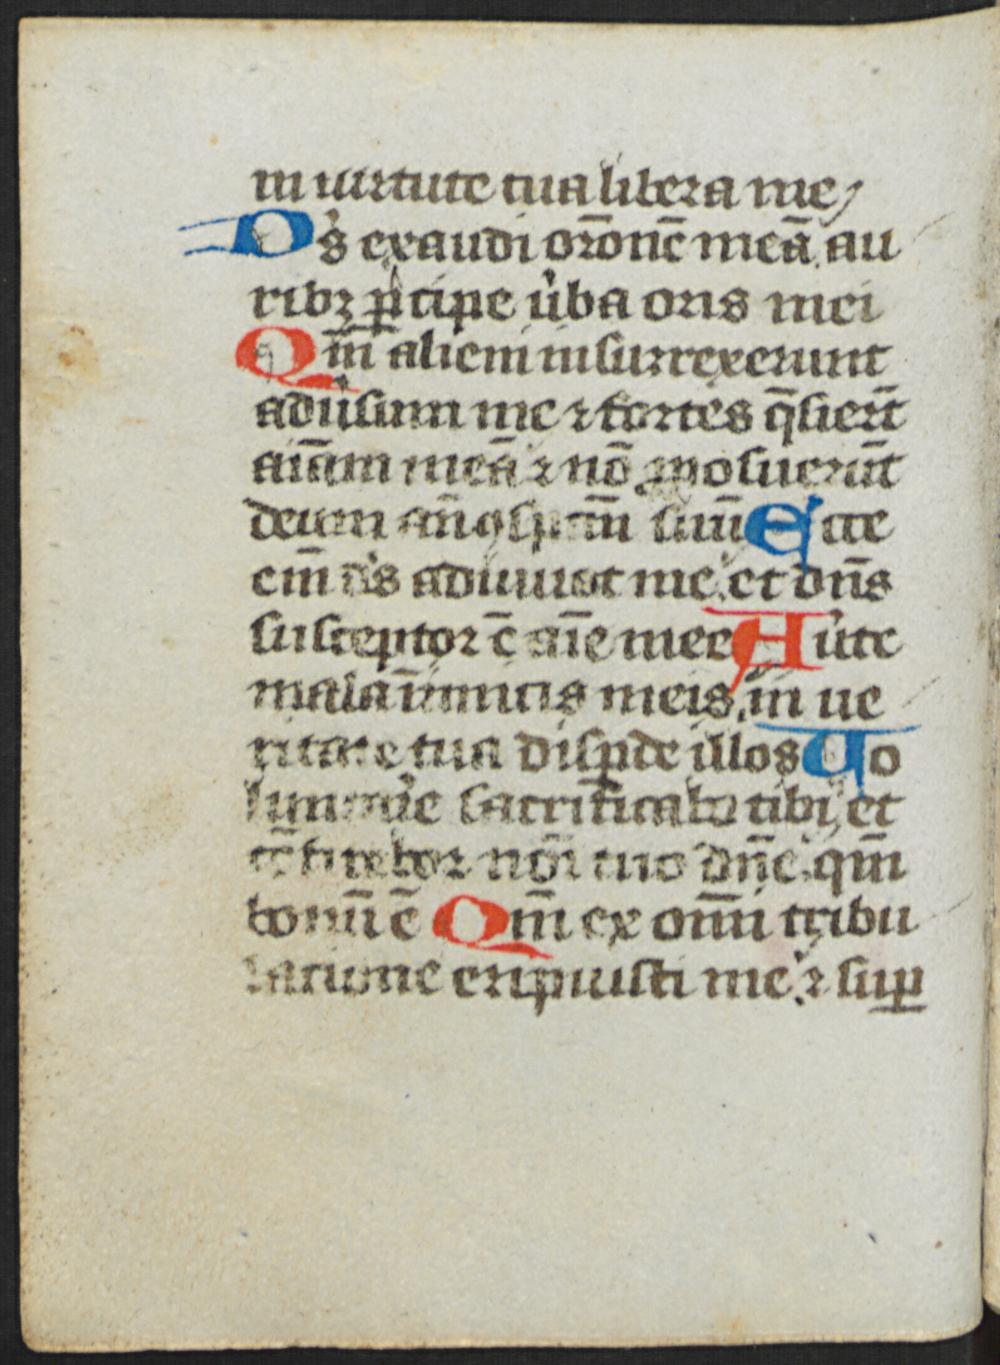 in uirtute tua libera me
Ds̓ exaudi or̄onē meā au
ribꝫ ꝑcipe u̓ba oris mei
Qm̄ alieni insurrexerunt
adu̓sum me ⁊ fortes q̄sier̄t
aīam meā ⁊ nō ꝓposuerūt
deum an̄ ɔspc̄m suū Ecce
em̄ ds̓ adiuuat me et dn̄s
susceptor ē aīe mee Au̓te
mala īimicis meis in ue
ritate tua disꝑde illos Uo
luntarie sacrificabo tibi et
ɔfitebor nōi tuo dn̄e qm̄
bonū ē Qm̄ ex om̄i tribu
latione eripuisti me ⁊ suꝑ